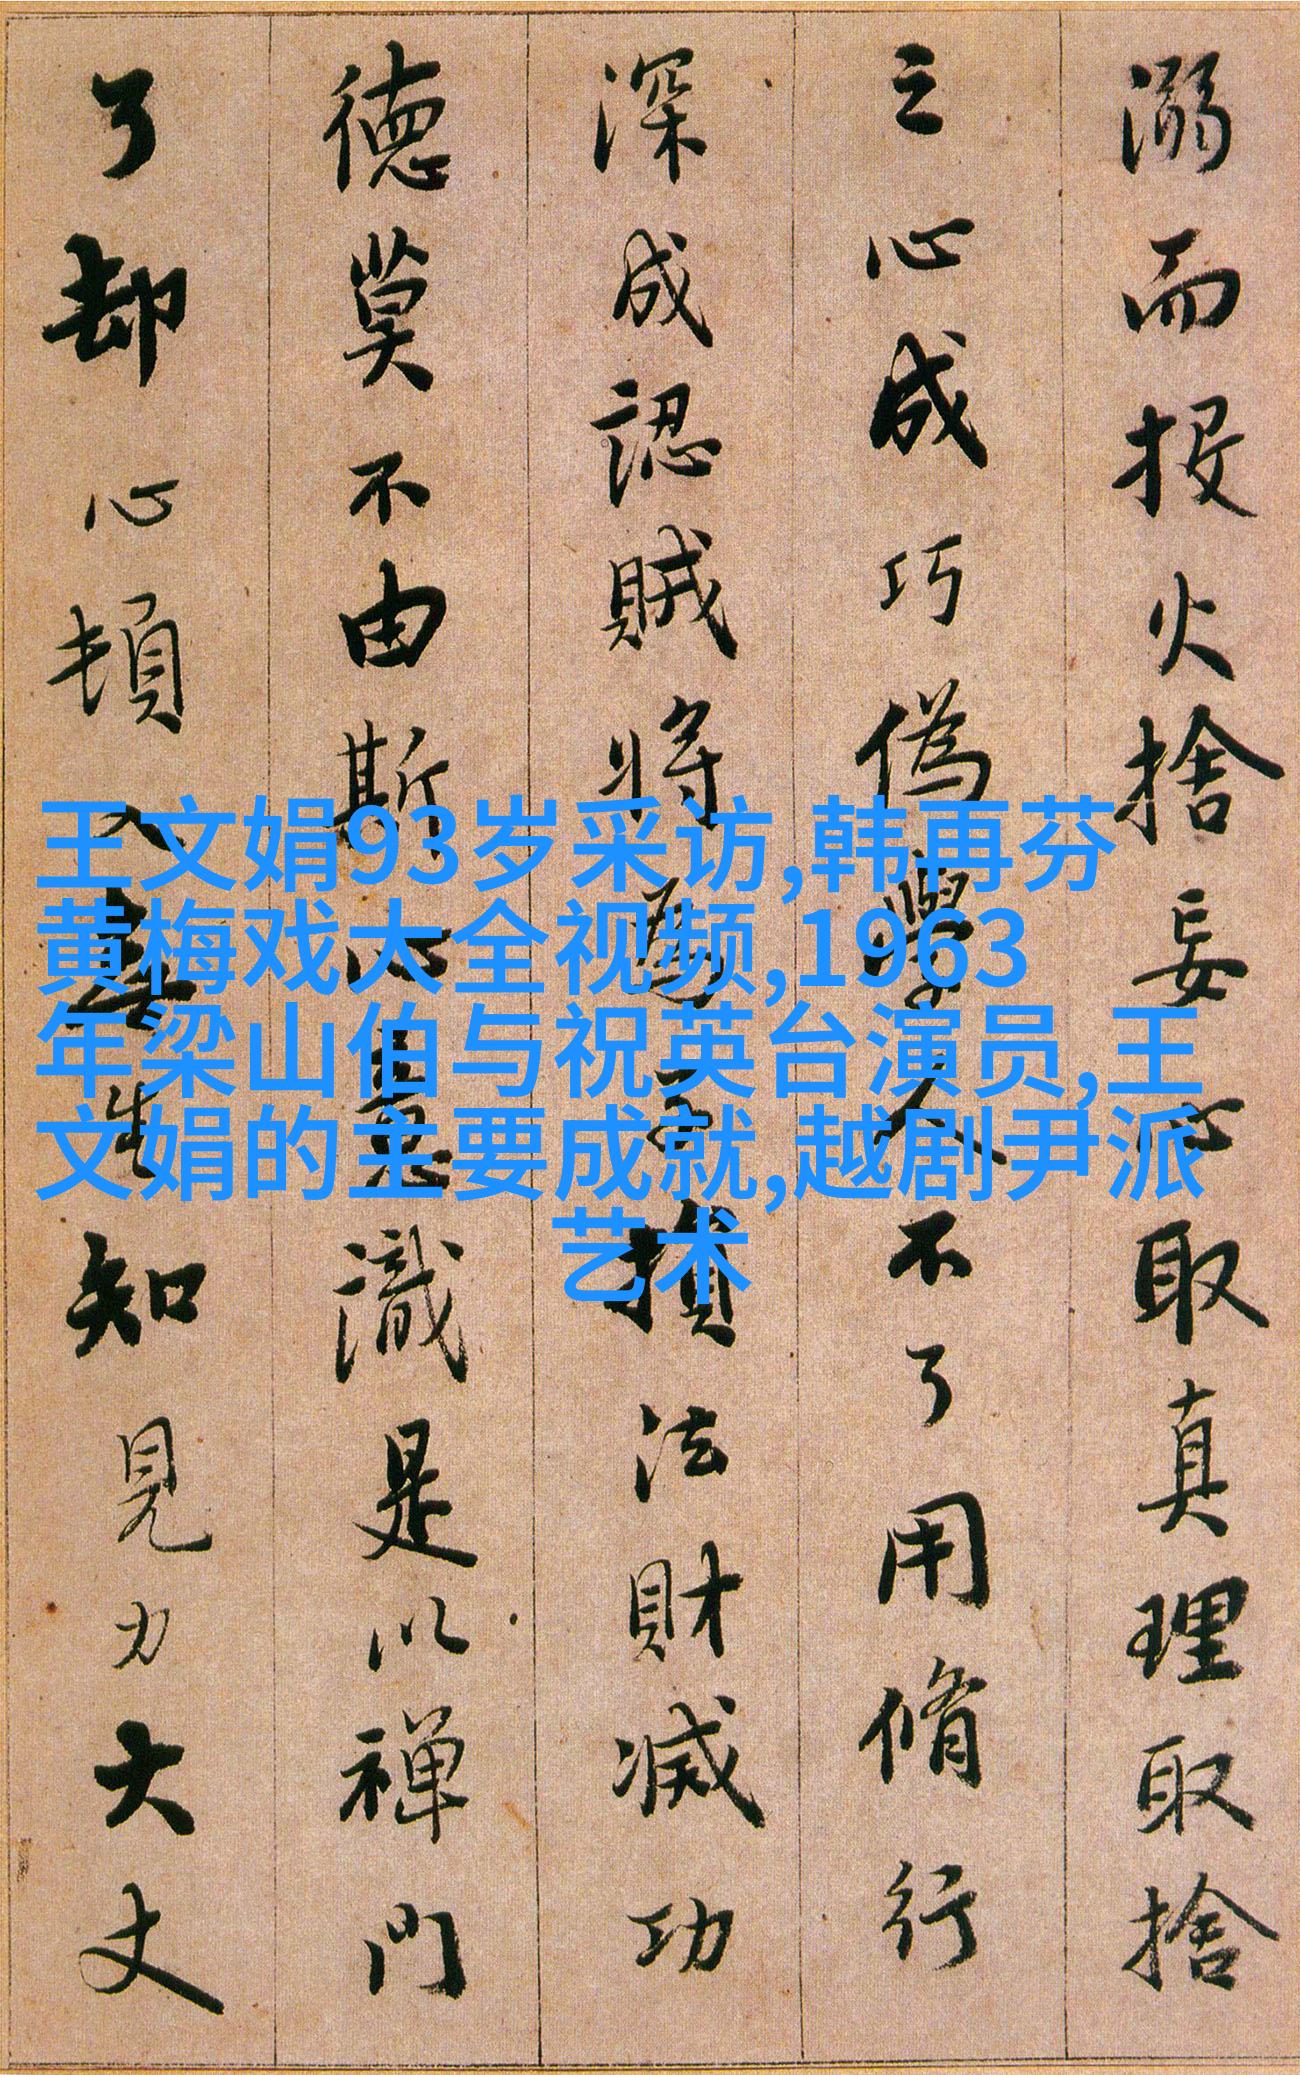 溺而投火捨妄心取真理取捨
之心成巧偽學人不了用脩行
深成認賊將為子損法財滅功
德莫不由斯心意識是以禪門
了却心頓入無生知見力大丈
王文娟93岁采访,韩再芬
黄梅戏大全视频,1963
年梁山伯与祝英台演员,王
文娟的主要成就,越剧尹派
艺术